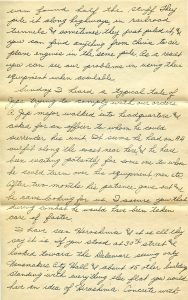 even found half the stuff. They
pile it along highways in railroad
tunnels & sometimes they just piled it, &
you can find anything from china to air
plane engines in the same pile. As a result
you can see our problems in using their
equipment when available.
Sunday I heard a typical tale of
Japs trying to comply with our orders
A Jap major walked into headquarters &
asked for an officer to whom he could
surrender his ammo. It seems he had an AA
outfit along the coast near here & he had
been waiting patiently for some one to whom
he could turn over the equipment men etc.
After two months his patience gave out &
he came looking for us. I assure you that
during combat he would have been taken
care of faster.
I have seen Hiroshima & it is all they
say it is. If you stood at 30th street &
looked towards the Delaware seeing only
Wanamakers City Hall & about 15 other bldgs
standing with everything else flat you would
have an idea of Hiroshima. Concrete with